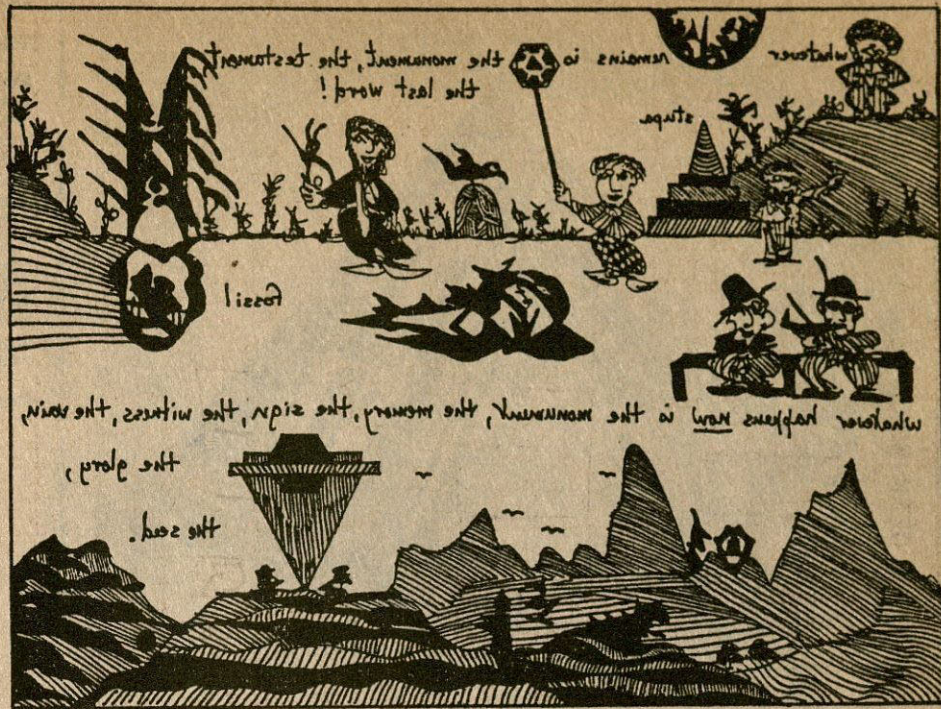 whatever remains is the monument, the testament,
the last word!
stupa
fossil
whatever happens now is the monument, the memory, the sign, the witness, the vain,
the glory,
the seed.